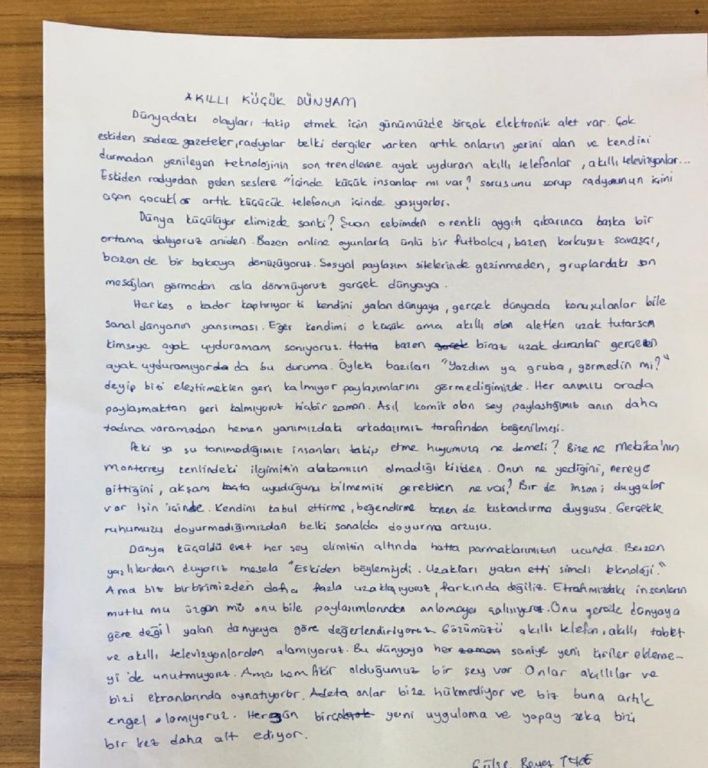 AKILLI KÜÇÜK DÜNYAM
Dünyadaki olayları takip etmek için günümüzde birçok elektronik alet var. Çok
eskiden sadece gazeteler, radyolar belki dergiler varken artık onların yerini alan ve kendini
durmadan yenileyen teknolojinin son trendlerine ayak uyduran akıllı telefonlar, akıllı televizyonlar...
Eskiden radyodan gelen seslere "İçinde küçük insanlar mı var? sorusunu sorup radyonun içini
açan çocuklar artık küçücük telefonun içinde yaşıyorlar.
Dünya küçülüyor elimizde sanki? Şuan cebimden o renkli aygıtı çıkarınca başka bir
ortama dalıyoruz aniden. Bazen online oyunlarla ünlü bir futbolcu, bazen korkusuz savaşçı,
bazen de bir bakıcıya dönüşüyoruz. Sosyal paylaşım sitelerinde gezinmeden, gruplardaki son
mesajları görmeden asla dönmüyoruz gerçek dünyaya.
Herkes o kadar kaptırıyor ki kendini yalan dünyaya, gerçek dünyada konuşulanlar bile
sanal dünyanın yansıması. Eğer kendimi o küçük ama akıllı olan aletten uzak tutarsam
kimseye ayak uyduramam sanıyoruz. Hatta bazen biraz uzak duranlar gerçekten
ayak uyduramıyor da bu duruma. Öyleki bazıları "Yazdım ya gruba, görmedin mi?"
deyip bizi eleştirmekten geri kalmıyor paylaşımlarını görmediğimizde. Her anımızı orada
paylaşmaktan geri kalmıyoruz hiçbir zaman. Asıl komik olan şey paylaştığımız anın daha
tadına varamadan hemen yanımızdaki arkadaşımız tarafından beğenilmesi.
Peki ya şu tanımadığımız insanları takip etme huyumuza ne demeli? Bize ne Meksika'nın
Monterrey kentindeki ilgimizin alakamızın olmadığı kişiden. Onun ne yediğini, nereye
gittiğini, akşam kaçta uyuduğunu bilmemizi gerektiren ne var? Bir de insani duygular
var işin içinde. Kendini kabul ettirme, beğendirme bazen de kıskandırma duygusu. Gerçekte
ruhumuzu doyurmadığımızdan belki sanalda doyurma arzusu.
Dünya küçüldü evet her şey elimizin altında hatta parmaklarımızın ucunda. Bazen
yaşlılardan duyarız mesela "Eskiden böylemiydi. Uzakları yakın etti şimdi teknoloji."
Ama biz birbirimizden daha fazla uzaklaşıyoruz, farkında değiliz. Etrafımızdaki insanların
mutlu mu üzgün mü onu bile paylaşımlarından anlamaya çalışıyoruz. Onu gerçek dünyaya
göre değil yalan dünyaya göre değerlendiriyoruz. Gözümüzü akıllı telefon, akıllı tablet
ve akıllı televizyonlardan alamıyoruz. Bu dünyaya her saniye yeni birilerini ekleme-
yi de unutmuyoruz. Ama hem fikir olduğumuz bir şey var. Onlar akıllılar ve
bizi ekranlarında oynatıyorlar. Adeta onlar bize hükmediyor ve biz buna artık
engel olamıyoruz. Her gün birçok yeni uygulama ve yapay zeka bizi
bir kez daha alt ediyor.